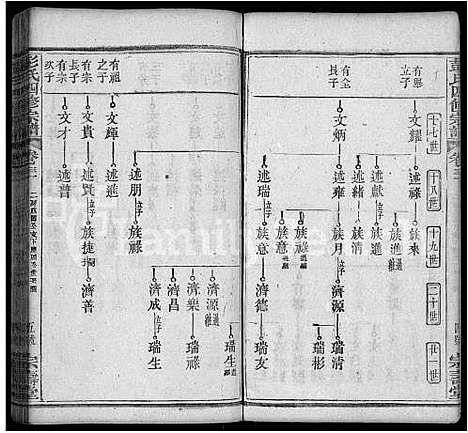 彭氏四修宗譜
十七世
十八世
十九世
二十世
廿一世
宗壽堂
有舉
立子
文耀
述獻
立子
族進
過繼
族來
有全
長子
文炳
述緒
述雍
族月
濟源
立子
瑞清
瑞彬
述瑞
族意
族祿
族意
濟德
瑞友
有祖
之子
文輝
述朋
立子
族祿
濟源
過繼
瑞生
濟樂
瑞祿
濟昌
濟成
立子
瑞生
述進
有宗
長子
文貴
述賢
立子
族捷
濟善
有宗
次子
文才
述普
彭氏四修宗譜
宗壽堂